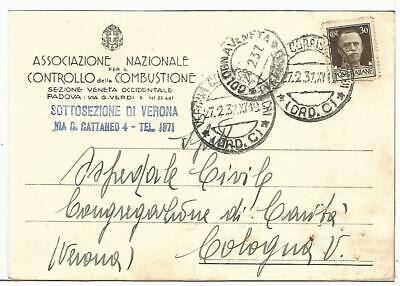 ASSOCIAZIONE NAZIONALE
PER IL
CONTROLLO della COMBUSTIONE
SEZIONE VENETA OCCIDENTALE
PADOVA: VIA G. VERDI 8
SOTTOSEZIONE DI VERONA
VIA G. CATTANEO 4 - TEL. 1871
COLOGNA VENETA
2.37
VERONA CORRISP
27.2.37.XV 19
(ORD. C)
CORRISP
27.2.37.XV 19
(ORD. C)
30
POSTE ITALIANE
Ospedale Civile
Congregazione di Carità
(Verona) Cologna V.